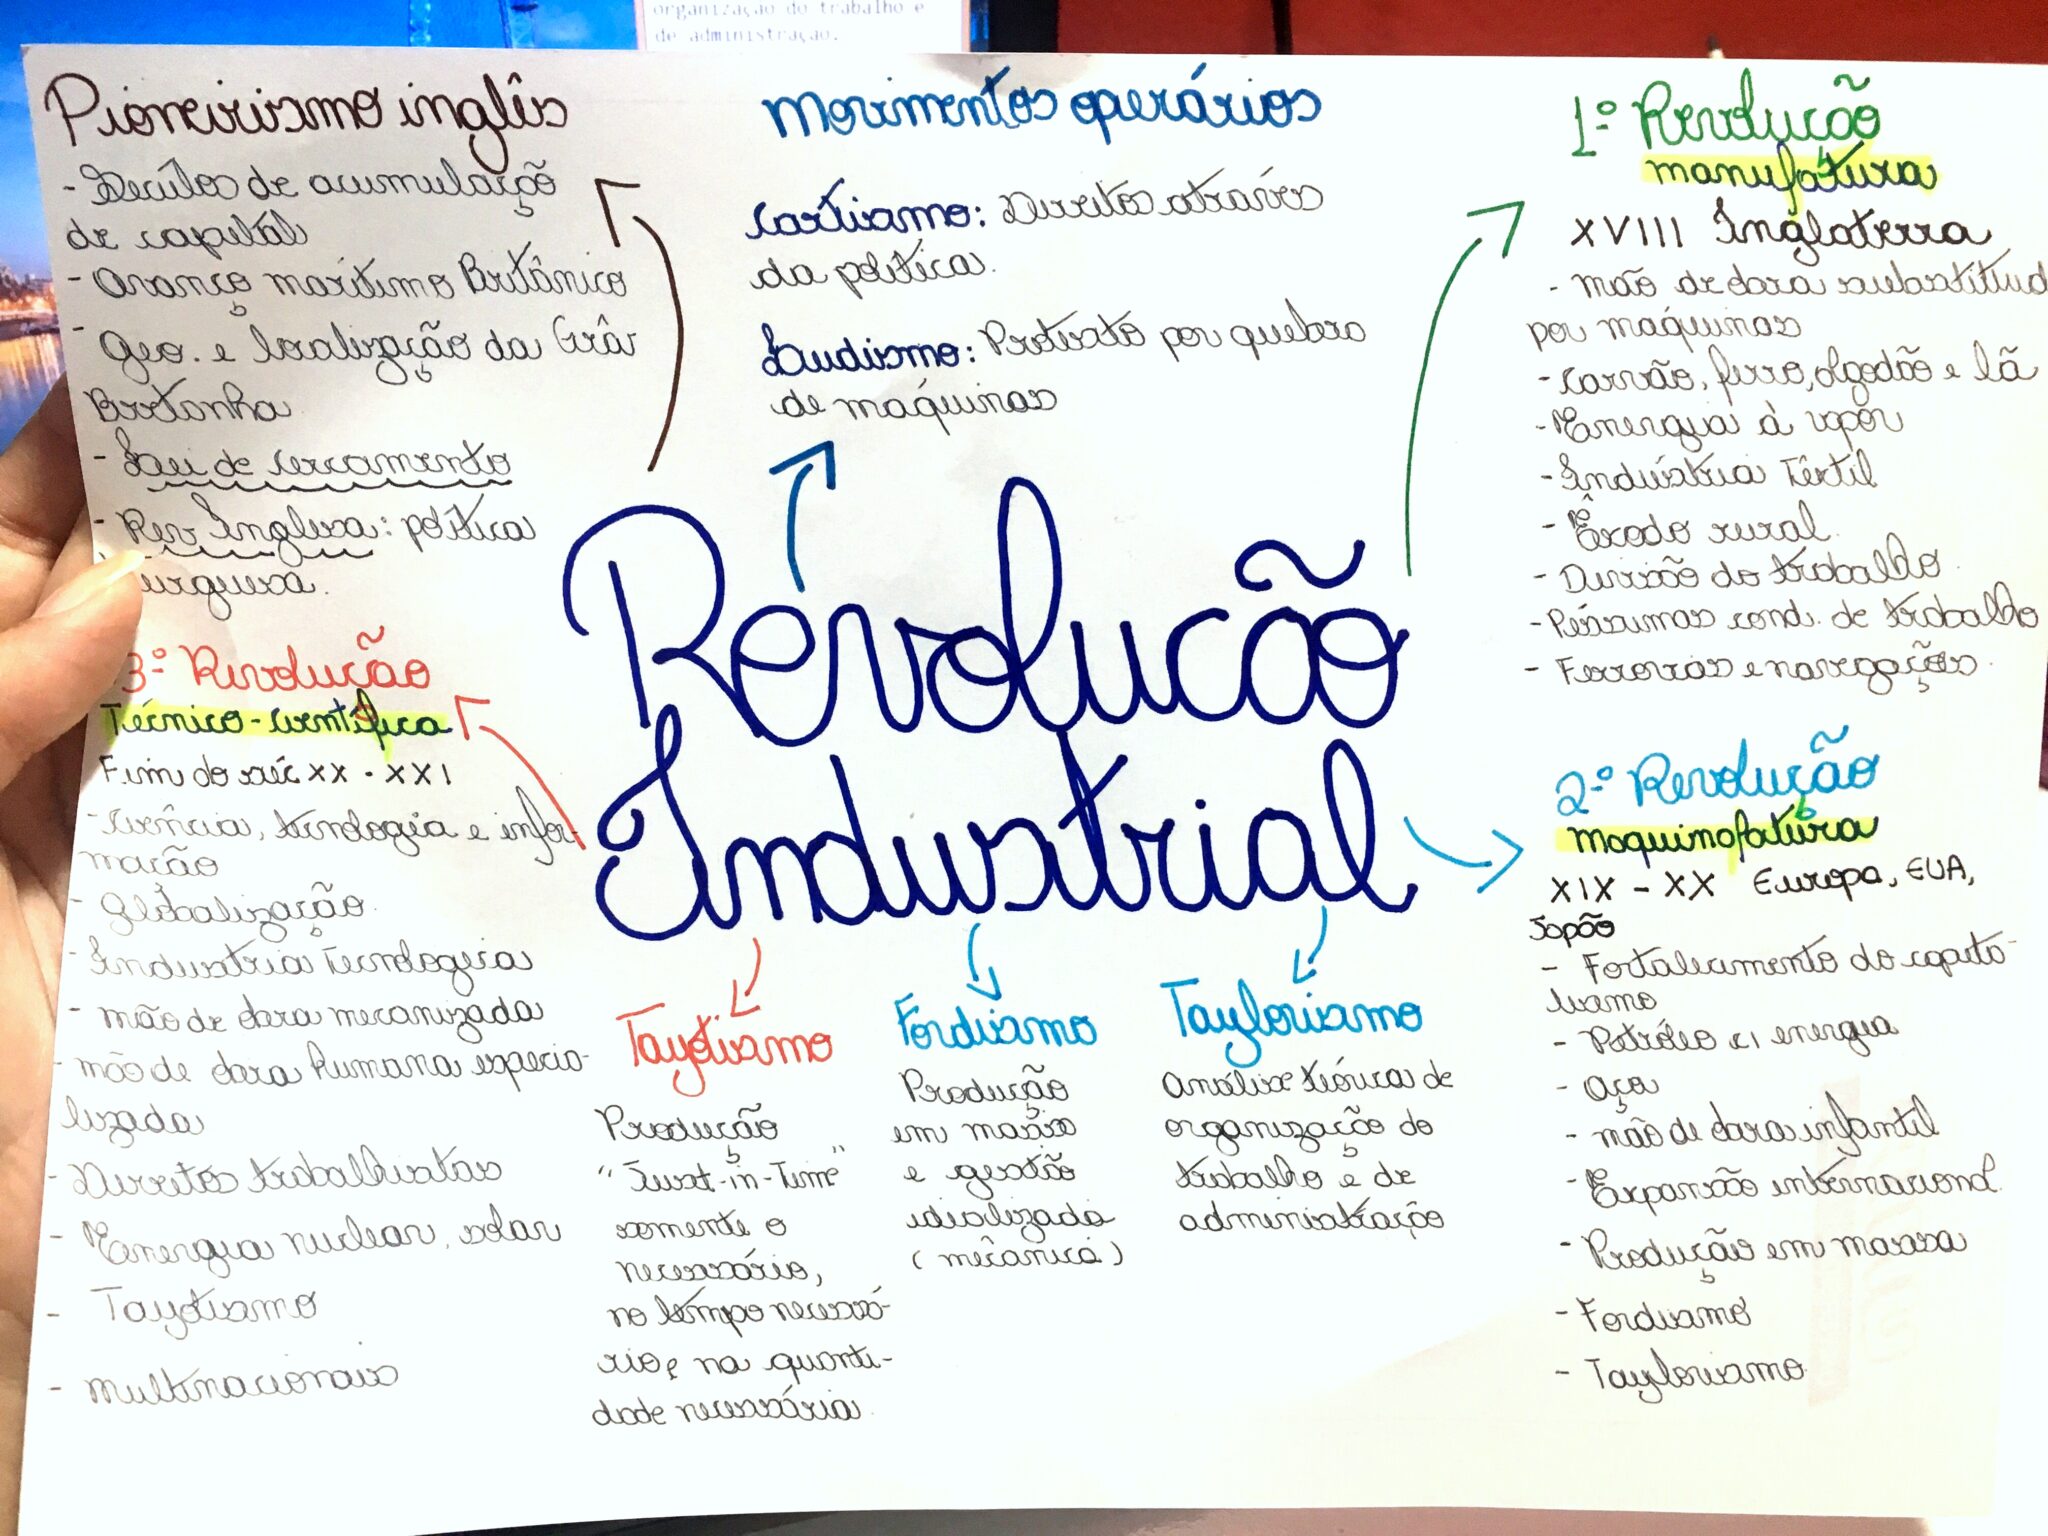 organização do trabalho e
de administração.
Pioneirismo inglês
- Séculos de acumulação
de capital
- Avanço marítimo Britânico
- Geo. e localização da Grã
Bretanha
- Lei de cercamento
- Rev Inglesa: política
urguesa.
Movimentos operários
Cartismo: Direitos através
da política.
Ludismo: Protesto por quebra
de máquinas
1º Revolução
manufatura
XVIII Inglaterra
- mão de obra substituid
por máquinas
- Carvão, ferro, algodão e lã
- Energia à vapor
- Indústria Têxtil
- Êxodo rural
- Divisão do trabalho
- Péssimas cond. de trabalho
- Ferrovias e navegações.
Revolucão
Industrial
3º Revolução
Técnico-científica
Fim do séc XX - XXI
- Ciência, tecnologia e infor-
mação
- Globalização
- Industria Tecnologica
- mão de obra mecanizada
- mão de obra humana especia-
lizada
- Direitos trabalhistas
- Energia nuclear, solar
- Toyotismo
- multinacionais
2º Revolução
maquinofatura
XIX - XX Europa, EUA,
Japão
- Fortalecimento do capita-
lismo
- Petróleo c/ energia
- Aço
- mão de obra infantil
- Expansão internacional.
- Produção em massa
- Fordismo
- Taylorismo
Toyotismo
Produção
"Just-in-Time"
somente o
necessário,
no tempo necessá-
rio, na quanti-
dade necessária.
Fordismo
Produção
em massa
e gestão
idealizada
(mecânica)
Taylorismo
Análise teórica de
organização do
trabalho e de
administração